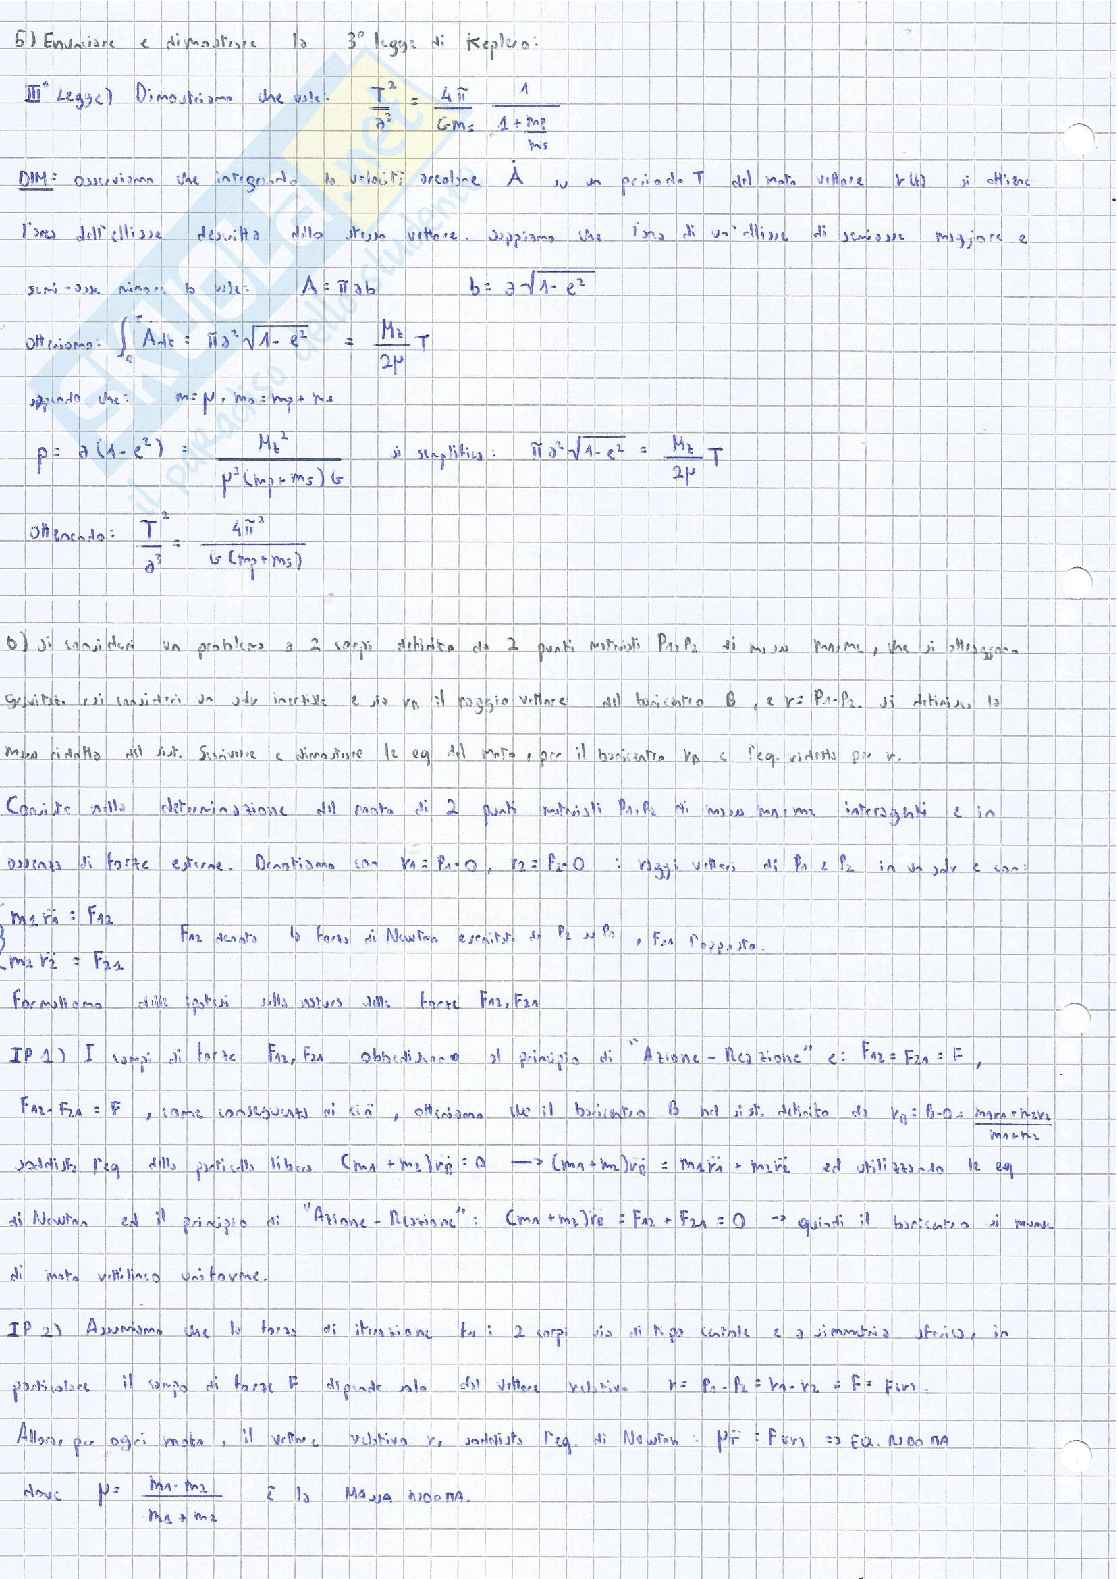 5) Enunciare e dimostrare la 3° legge di Keplero:
III° Legge) Dimostriamo che vale: T²/a³ = 4π/Gms 1/(1+mp/ms)
DIM: osserviamo che integrando la velocità areolare Ȧ su un periodo T del moto vettore r(t) si ottiene
l'area dell'ellisse descritta dallo stesso vettore. sappiamo che l'area di un'ellisse di semiasse maggiore e
semi-asse minore b vale: A = πab b = a√(1-e²)
Otteniamo: ∫ Ȧdt = πa²√(1-e²) = Mz/2μ T
sapendo che: m=μ, m0 = mp + ms
p = a(1-e²) = Mz²/μ²(mp+ms)G si semplifica: πa²√(1-e²) = Mz/2μ T
Ottenendo: T²/a³ = 4π²/G(mp+ms)
6) Si consideri un problema a 2 corpi definito da 2 punti materiali P1,P2 di massa m1,m2, che si attraggono
si consideri un sdr inerziale e sia rB il raggio vettore del baricentro B, e r = P1-P2. si definisca la
massa ridotta del sist. Scrivere e dimostrare le eq del moto, per il baricentro rB e l'eq. ridotta per r.
Consiste nella determinazione del moto di 2 punti materiali P1,P2 di massa m1,m2 interagenti e in
assenza di forze esterne. Denotiamo con r1 = P1-O, r2 = P2-O i raggi vettori di P1 e P2 in un sdr e con:
m1 r̈1 = F12
F12 denota la forza di Newton esercitata da P2 su P1, F21 l'opposta.
m2 r̈2 = F21
Formuliamo delle ipotesi sulla natura delle forze F12, F21
IP 1) I campi di forze F12, F21 obbediscono al principio di "Azione-Reazione" e: F12 = F21 = F,
F12 - F21 = F, come conseguenza di ciò, otteniamo che il baricentro B nel sist. definito da rB = B-O = m1r1+m2r2/m1+m2
soddisfa l'eq della particella libera (m1+m2)r̈B = 0 → (m1+m2)r̈B = m1r̈1 + m2r̈2 ed utilizzando le eq
di Newton ed il principio di "Azione-Reazione": (m1+m2)r̈B = F12 + F21 = 0 → quindi il baricentro si muove
di moto rettilineo uniforme.
IP 2) Assumiamo che la forza di iterazione tra i 2 corpi sia di tipo centrale e a simmetria sferica, in
particolare il campo di forze F dipende solo dal vettore relativo r = P1-P2 = r1-r2 = F = F(r).
Allora, per ogni moto, il vettore relativo r, soddisfa l'eq. di Newton: μr̈ = F(r) => EQ. RIDOTTA
dove μ = m1·m2/m1+m2 è la MASSA RIDOTTA.